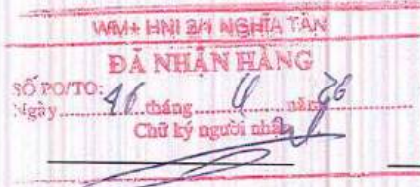 WM+ HNI 2/1 NGHĨA TÂN
ĐÃ NHẬN HÀNG
SỐ PO/TO:
Ngày 16 tháng 4 năm 26
Chữ ký người nhận